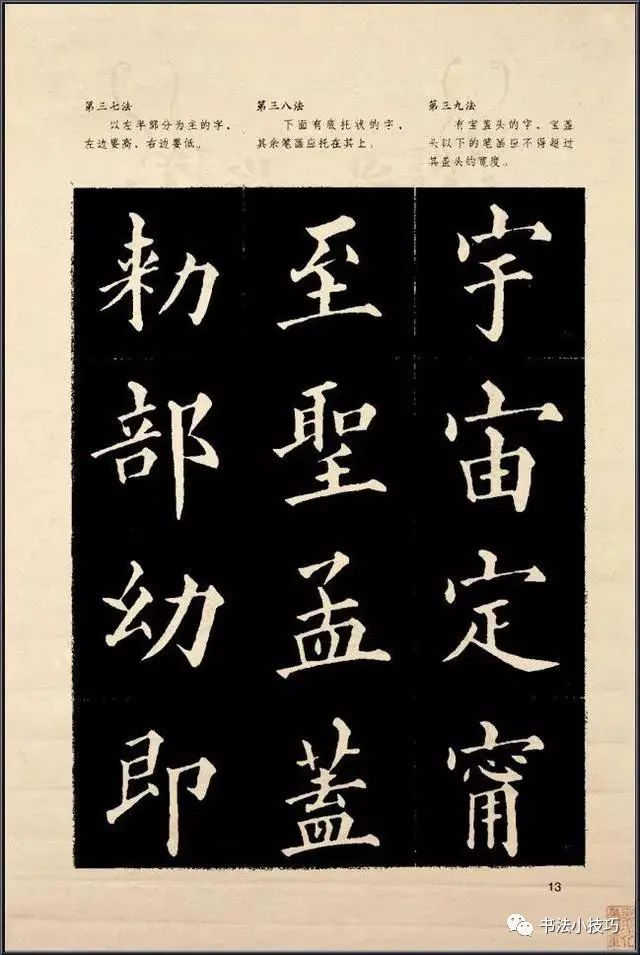 第三七法
以左半部分为主的字，
左边要高，右边要低。
第三八法
下面有底托状的字，
其余笔画应托在其上。
第三九法
有宝盖头的字，宝盖
头以下的笔画应不得超过
其盖头的宽度。
勑部幼即
至聖孟蓋
宇宙定甯
13
书法小技巧